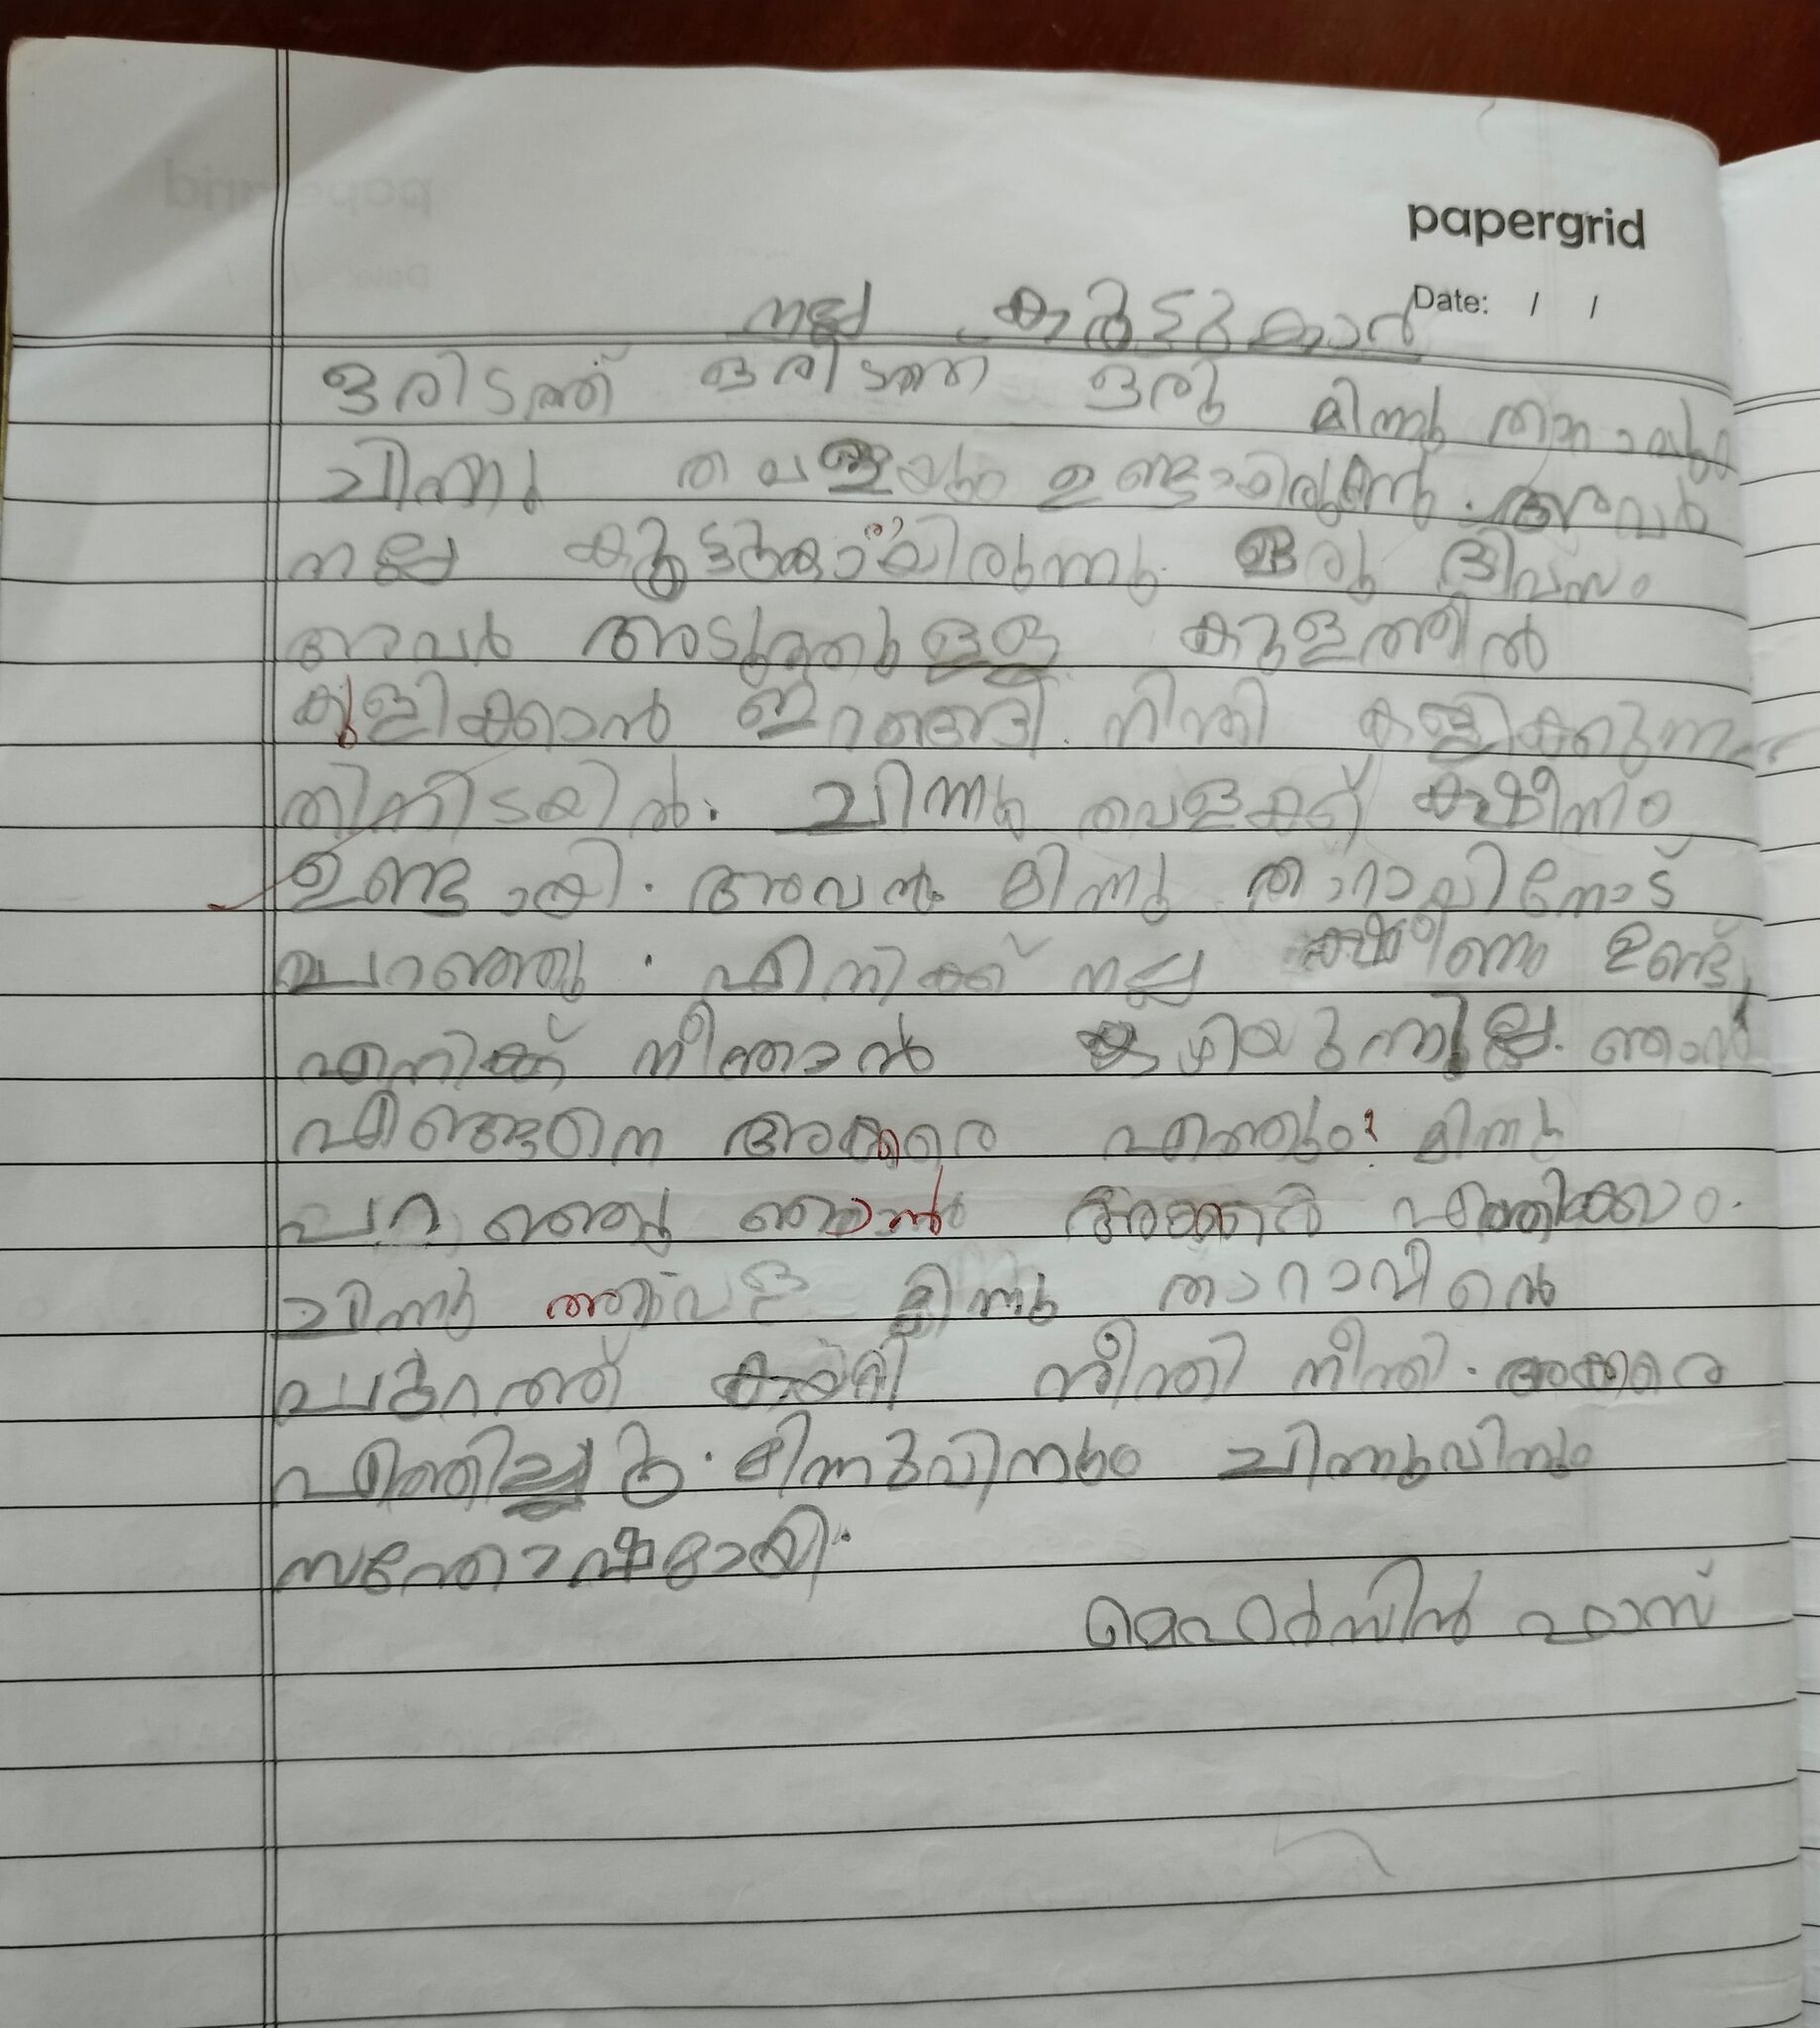 papergrid
Date: / /
നല്ല കൂട്ടുകാർ
ഒരിടത്ത് ഒരിടത്ത് ഒരു മിന്നു താറാവും
ചിന്നു തവളയും ഉണ്ടായിരുന്നു. അവർ
നല്ല കൂട്ടുകാരായിരുന്നു. ഒരു ദിവസം
അവർ അടുത്തുള്ള കുളത്തിൽ
കുളിക്കാൻ ഇറങ്ങി. നീന്തി കളിക്കുന്ന
തിനിടയിൽ. ചിന്നു തവളക്ക് ക്ഷീനം
ഉണ്ടായി. അവൻ മിന്നു താറാവിനോട്
പറഞ്ഞു. എനിക്ക് നല്ല ക്ഷീണം ഉണ്ട്,
എനിക്ക് നീന്താൻ കഴിയുന്നില്ല. ഞാൻ
എങ്ങനെ അക്കരെ എത്തും? മിന്നു
പറഞ്ഞു ഞാൻ അക്കരെ എത്തിക്കാം.
ചിന്നു തവള മിന്നു താറാവിന്റെ
പുറത്ത് കയറി നീന്തി നീന്തി. അക്കരെ
എത്തിച്ചു. മിന്നുവിനും ചിന്നുവിനും
സന്തോഷമായി.